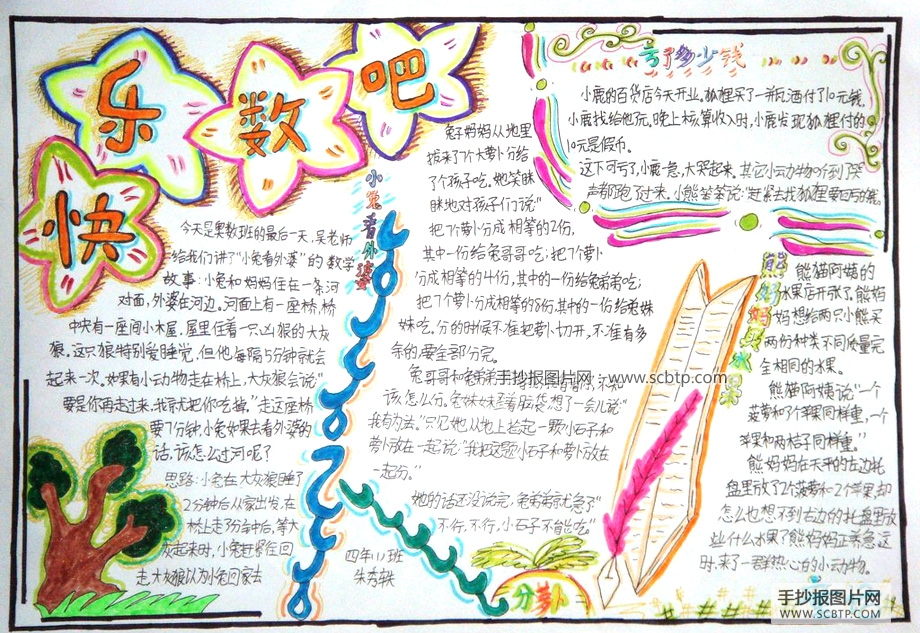 快
乐
数
吧
小兔看外婆
今天是奥数班的最后一天,吴老师
给我们讲了“小兔看外婆”的数学
故事:小兔和妈妈住在一条河
对面,外婆在河边。河面上有一座桥,桥
中央有一座间小木屋,屋里住着一只凶狠的大灰
狼。这只狼特别爱睡觉,但他每隔5分钟就会
起来一次。如果有小动物走在桥上,大灰狼会说“
要是你再走过来,我就把你吃掉。”走这座桥
要7分钟,小兔如果去看外婆的
话,该怎么过河呢?
思路:小兔在大灰狼睡了
2分钟后从家出发,在
桥上走3分钟后,等大
灰起来时,小兔赶紧往回
走,大灰狼认为小兔回家去
兔子妈妈从地里
拔来了7个大萝卜分给
了个孩子吃。她笑眯
眯地对孩子们说“
把7个萝卜分成相等的2份,
其中一份给兔哥哥吃;把7个萝卜
分成相等的4份,其中的一份给兔弟弟吃;
把7个萝卜分成相等的8份,其中的一份给兔妹
妹吃。分的时候不准把萝卜切开,不准有多
余的,要全部分完。
兔哥哥和兔弟弟
该怎么分。兔妹妹歪着脑袋想了一会儿说“
我有办法。”只见她从地上拾起一颗小石子和
萝卜放在一起说:“我把这题小石子和萝卜放在
一起分。”
她的话还没说完,兔弟弟就急了“
不行,不行,小石子不能吃”
四年11班
分萝卜
亏了多少钱
小鹿的百货店今天开业。狐狸买了一瓶酒付了10元钱,
小鹿找给他元。晚上核算收入时,小鹿发现狐狸付的
10元是假币。
这下可亏了,小鹿一急,大哭起来。其它小动物听到哭
声都跑了过来。小熊笨笨说“赶紧去找狐狸要回
熊妈妈买水果
熊猫阿姨的
水果店开张了,熊妈
妈想给两只小熊买
两份种类不同质量完
全相同的水果。
熊猫阿姨说“一个
菠萝和7个苹果同样重,一个
苹果和两桔子同样重。”
熊妈妈在天平的左边托
盘里放了2个菠萝和2个苹果,却
怎么也想不到右边的托盘里放
些什么水果了熊妈妈正着急这
时,来了一群热心的小动物。
手抄报图片网：www.scbtp.com
手抄报图片网
WWW.SCBTP.COM